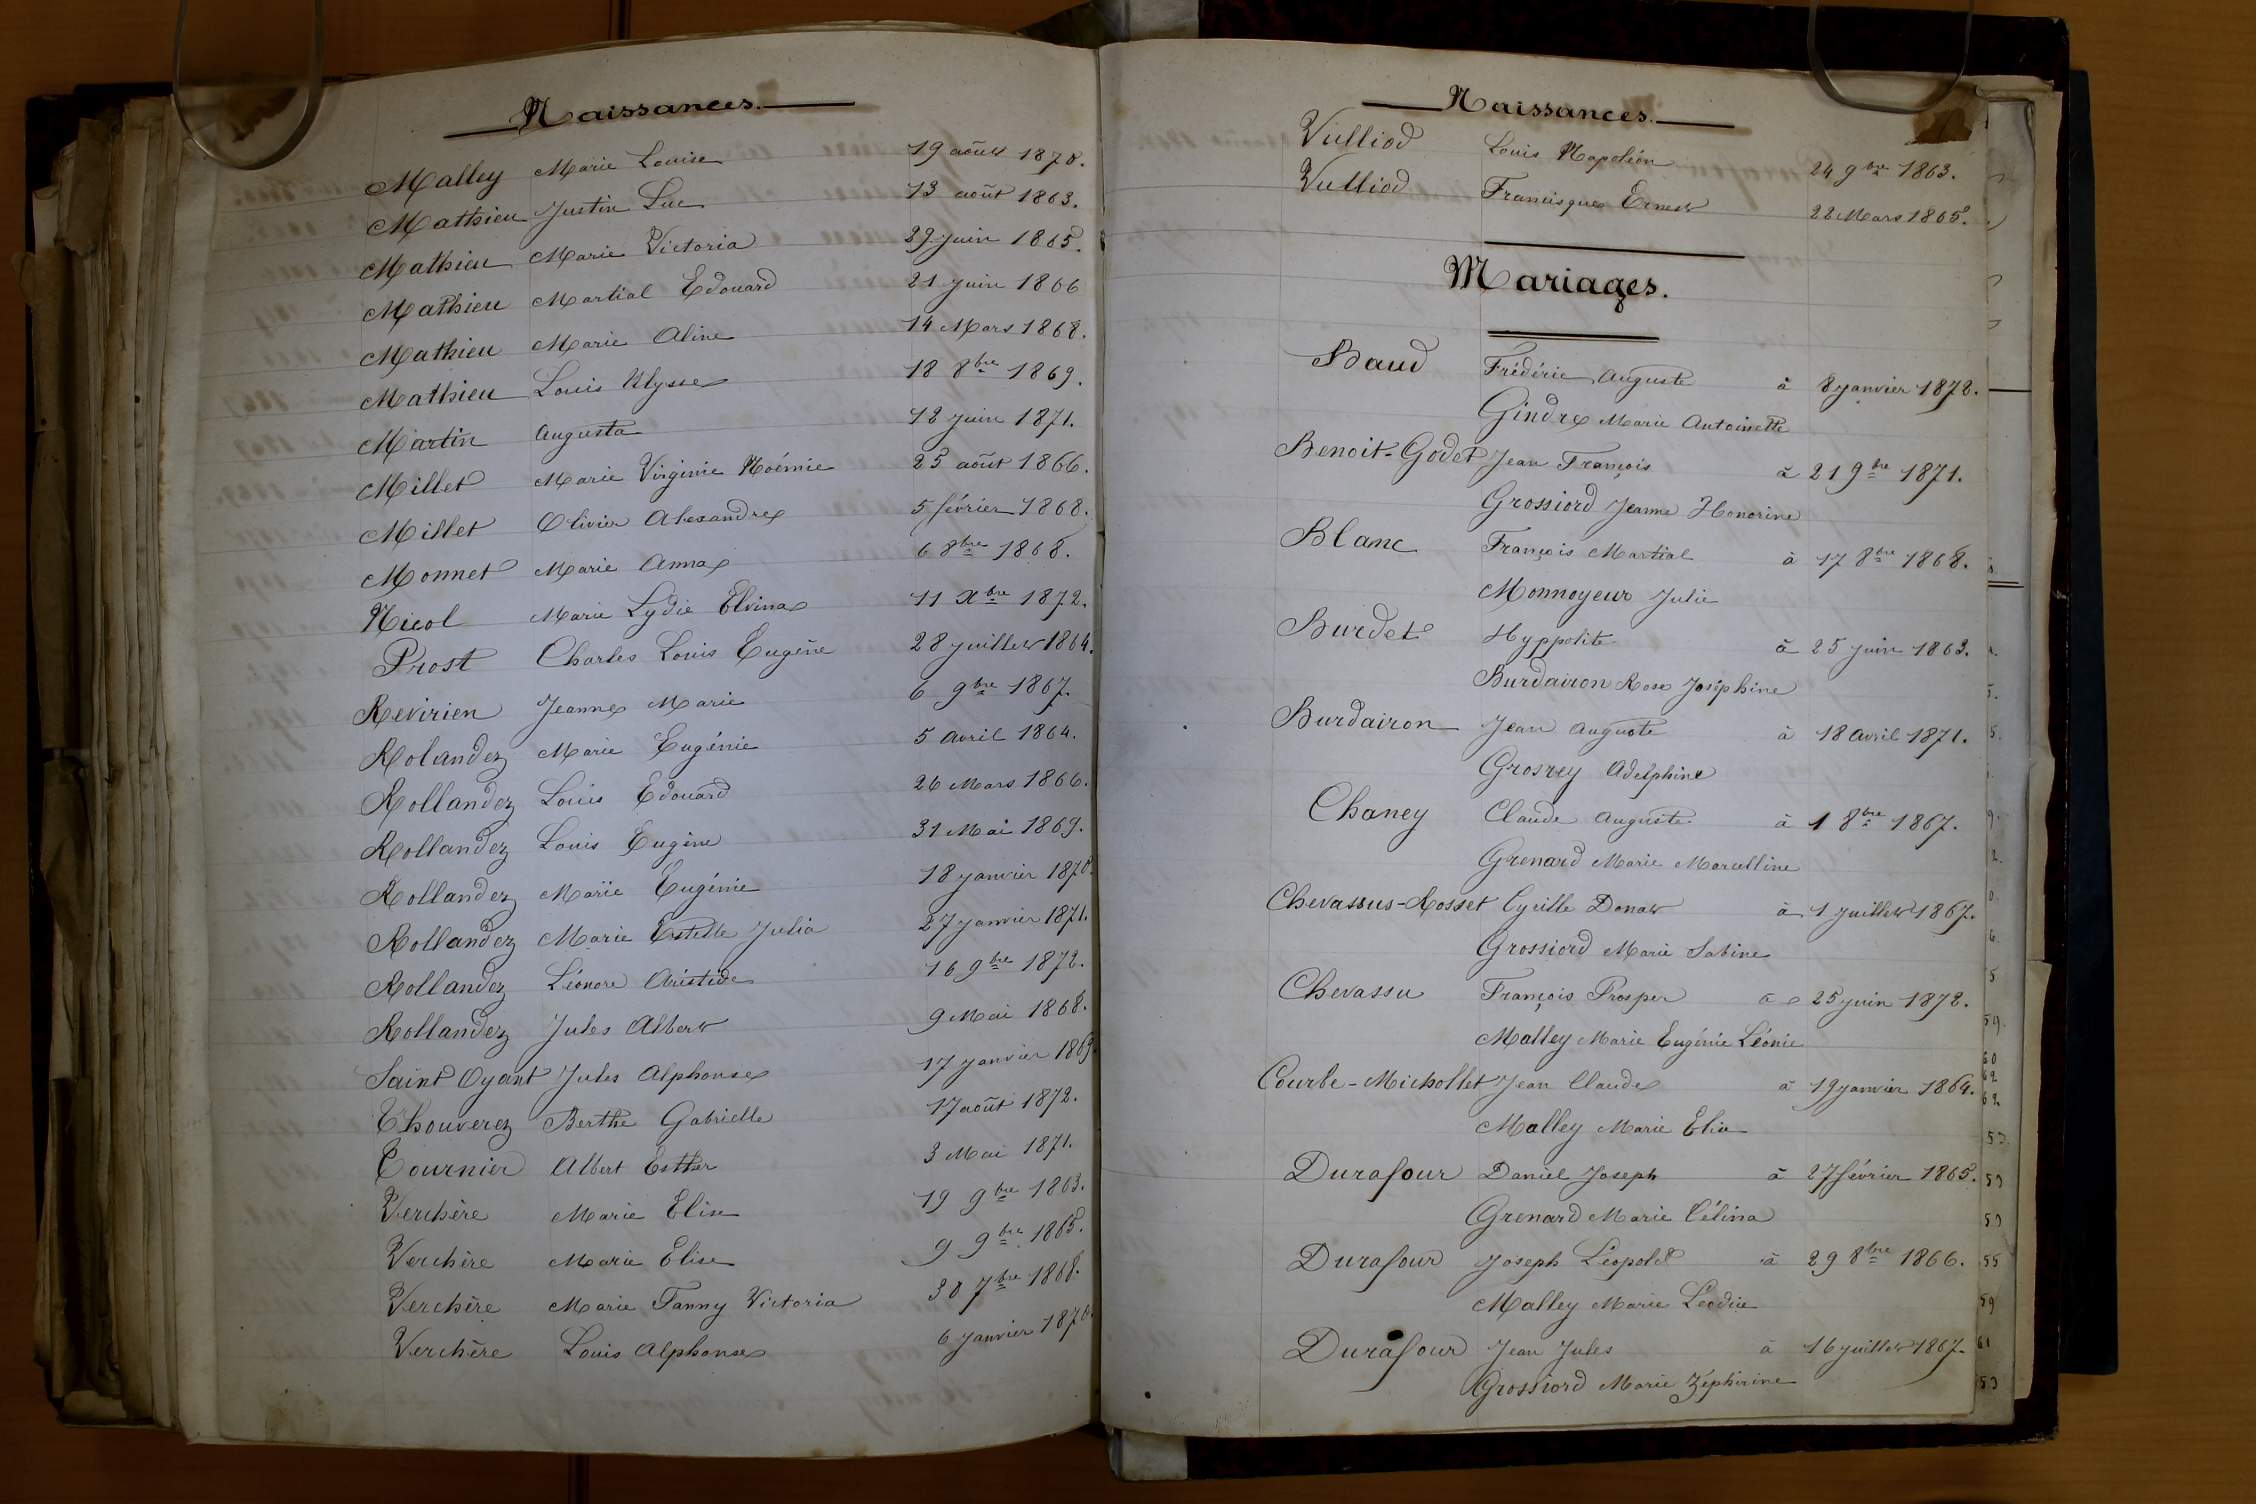 Naissances.
Malley Marie Louise 19 août 1870.
Mathieu Justin Luc 13 août 1863.
Mathieu Marie Victoria 29 juin 1865.
Mathieu Martial Edouard 21 juin 1866
Mathieu Marie Aline 14 Mars 1868.
Mathieu Louis Ulysse 18 8bre 1869.
Martin Augusta 12 juin 1871.
Millet Marie Virginie Noémie 25 août 1866.
Millet Olivier Alexandre 5 février 1868.
Monnet Marie Anna 6 8bre 1868.
Nicol Marie Lydie Elvina 11 Xbre 1872.
Prost Charles Louis Eugène 28 juillet 1864.
Revirien Jeanne Marie 6 9bre 1867.
Rolandez Marie Eugénie 5 Avril 1864.
Rollandez Louis Edouard 26 Mars 1866.
Rollandez Louis Eugène 31 Mai 1869.
Rollandez Marie Eugénie 18 janvier 1870.
Rollandez Marie Estelle Julia 27 janvier 1871.
Rollandez Léonore Aristide 16 9bre 1872.
Rollandez Jules Albert 9 Mai 1868.
Saint Oyant Jules Alphonse 17 janvier 1869.
Thouverez Berthe Gabrielle 17 août 1872.
Tournier Albert Esther 3 Mai 1871.
Verchère Marie Elise 19 9bre 1863.
Verchère Marie Elise 9 9bre 1865.
Verchère Marie Fanny Victoria 30 7bre 1868.
Verchère Louis Alphonse 6 janvier 1870.
Naissances.
Vulliod Louis Napoléon 24 9bre 1863.
Vulliod Francisque Ernest 22 Mars 1865.
Mariages.
Baud Frédéric Auguste à 8 janvier 1872.
Gindre Marie Antoinette
Benoit-Godet Jean François à 21 9bre 1871.
Grossiord Jeanne Honorine
Blanc François Martial à 17 8bre 1868.
Monnoyeur Julie
Burdet Hyppolite à 25 juin 1863.
Burdairon Rose Joséphine
Burdairon Jean Auguste à 18 Avril 1871.
Grosrey Adelphine
Chaney Claude Auguste à 1 8bre 1867.
Grenard Marie Marcelline
Chevassus-Rosset Cyrille Donat à 1 juillet 1867.
Grossiord Marie Sabine
Chevassu François Prosper à 25 juin 1872.
Malley Marie Eugénie Léonie
Courbe-Michollet Jean Claude à 19 janvier 1864.
Malley Marie Elia
Durafour Daniel Joseph à 27 février 1865.
Grenard Marie Célina
Durafour Joseph Léopold à 29 8bre 1866.
Malley Marie Léodie
Durafour Jean Jules à 16 juillet 1867.
Grossiord Marie Zéphirine